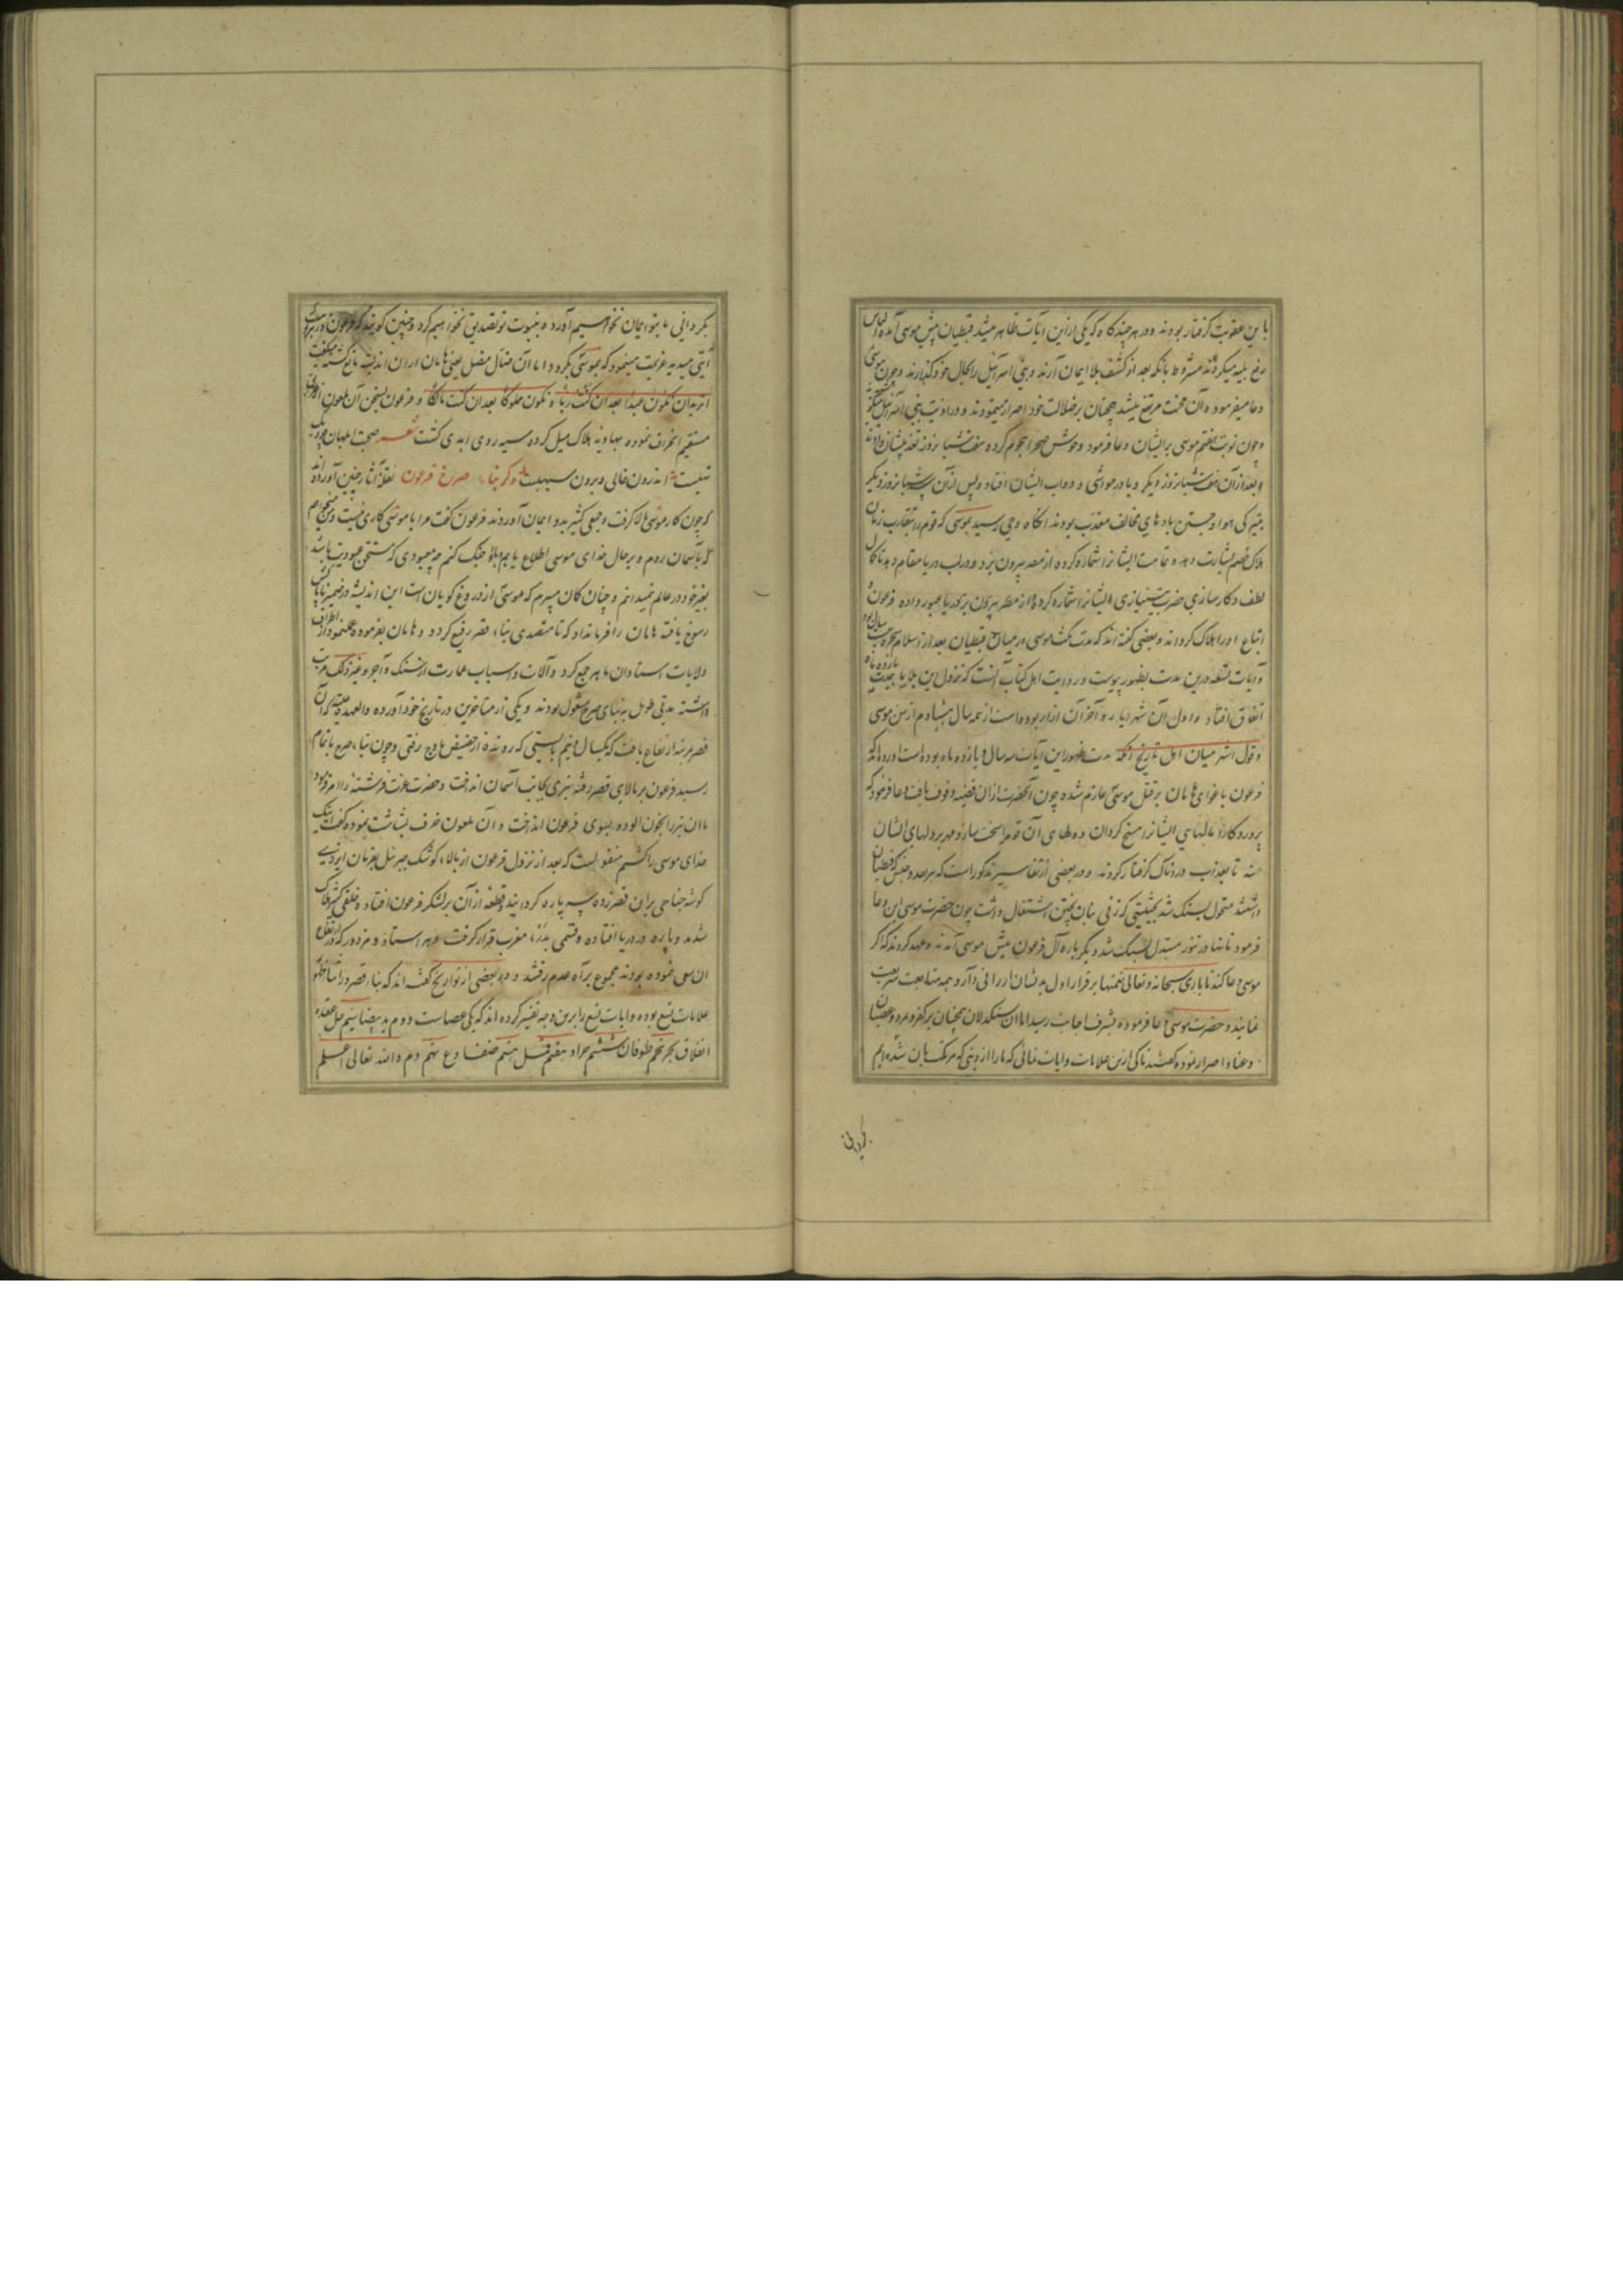 باین عقوبت گرفتار بودند و در هر چند گاه که یکی ازین آیات ظاهر میشد قبطیان پیش موسی آمده التماس
رفع بلیه میکردند مشروط بانکه بعد از کشف بلا ایمان آرند و بنی اسرائیل را بحال خود گذارند و چون موسی
دعا میفرمود و آن محنت مرتفع میشد همچنان بر ضلالت خود اصرار مینمودند و در اذیت بنی اسرائیل
و چون نوبت هفتم موسی بر ایشان دعا فرمود وحوش صحرا هجوم کرده هفت شبانروز تعذیب ایشان دادند
و بعد از آن هفت شبانروز دیگر وبا در مواشی و دواب ایشان افتاد و پس از آن شبانروز دیگر
هوا و جستن بادهای مخالف معذب بودند آنگاه وحی رسید بموسی که قوم را بتقارب زمان
هلاک خصم بشارت دهد و تمامت ایشانرا شماره کرده از مصر بیرون برد و در لب دریا مقام دهد تا کمال
لطف و کارسازی حضرت بی نیازی ایشانرا شماره کرده از مصر بیرون برد و از دریا عبور داده فرعون و
اتباع او را هلاک گرداند و بعضی گفته اند که مدت مکث موسی در میان قبطیان بعد از اسلام سحره بیست سال بود
و آیات تسعه درین مدت بظهور پیوست و در روایت اهل کتاب آنست که نزول این بلایا بمدت یازده ماه
اتفاق افتاد و اول آن شهر ایار و آخر آن آذار بوده است از سال هشتادم از سن موسی
و قول اشهر میان اهل تاریخ آنکه مدت ظهور این آیات سه سال و یازده ماه بوده است آورده اند که
فرعون باغوای هامان بر قتل موسی عازم شده چون آنحضرت ازان قضیه وقوف یافت دعا فرمود که
پروردگارا مالهای ایشانرا مسخ گردان و دلهای آن قوم را سخت ساز و مهر بر دلهای ایشان
نه تا بعذاب دردناک گرفتار گردند و در بعضی از تفاسیر مذکور است که هر نقد و جنس که قبطیان
داشتند متحول بسنگ شد بحیثیتی که زنی بنان پختن اشتغال داشت چون حضرت موسی این دعا
فرمود نانها در تنور مبتدل بسنگ شد دیگر باره آل فرعون پیش موسی آمدند و عهد کردند که اگر
موسی دعا کند تا باری سبحانه و تعالی نعمتها بر قرار اول بدیشان ارزانی دارد همه متابعت شریعت
نمایند و حضرت موسی دعا فرموده بشرف اجابت رسید اما آن سنگدلان همچنان بر کفر و تمرد و عصیان
و عناد اصرار نموده گفتند تا کی ازین علامات و آیات نمائی که ما را از دینی که مرتکب آن شده ایم
بگردانی
بگردانی ما بتو ایمان نخواهیم آورد و بنبوت تو تصدیق نخواهیم کرد و چنین گویند که فرعون در هر نوبت
آیتی میدید عزیمت مینمود که بموسی بگرود اما آن ضال مضل یعنی هامان او را ازان اندیشه مانع گشته میگفت
اترید ان تکون عبدا بعد ان کنت ربا و تکون مملوکا بعد ان کنت مالکا و فرعون بسخن آن ملعون از طریق
مستقیم انحراف نموده بهاویه هلاک میل کرده سیه روی ابدی گشت شعر صحبت ابلهان چو دیگ
تهیست اندرون خالی و برون سیهست ذکر بناء صرح فرعون نقله آثار چنین آورده اند
که چون کار موسی بالا گرفت و جمعی کثیر بدو ایمان آوردند فرعون گفت مرا با موسی کاری نیست و من میخواهم
که بآسمان روم و بر حال خدای موسی اطلاع یابم و با او جنگ کنم چه معبودی که مستحق عبودیت باشد
بغیر خود در عالم نمیدانم و چنان گمان میبرم که موسی از دروغ گویان است این اندیشه در ضمیر ناپاکش
رسوخ یافته هامان را فرمان داد که تا متصدی بناء قصر رفیع گردد و هامان بفرموده عمل نمود از اطراف
ولایات استادان ماهر جمع کرد و آلات و اسباب عمارت از سنگ و آجر و غیر ذلک مرتب
داشته مدتی طویل به بنای صرح مشغول بودند و یکی از متاخرین در تاریخ خود آورده و العهدة علیه که آن
قصر مرتبه ارتفاع یافت که یکسال و نیم بایستی که رونده از حضیض باوج رفتی و چون بناء صرح باتمام
رسید فرعون بر بالای قصر رفته تیری بجانب آسمان انداخت و حضرت عزت فرشته را امر فرمود
تا آن تیر را بخون آلوده بسوی فرعون انداخت و آن ملعون خرف بشاشت نموده گفت اینک
خدای موسی را کشتم منقولست که بعد از نزول فرعون از بالاء کوشک جبرئیل بفرمان ایزدی
گوشه جناحی بران قصر زده سه پاره گردانید و قطعه از آن بر لشکر فرعون افتاده خلقی کثیر هلاک
شدند و پاره در دریا افتاده و قسمی بدیار مغرب قرار گرفت و هر استاد و مزدور که در انجا
آن عمل نموده بودند مجموع براه عدم رفتند و در بعضی از تواریخ گفته اند که بناء قصر در اثناء ظهور
علامات تسع بوده و آیات تسع را برین وجه تفسیر کرده اند که یکی عصاست دوم ید بیضا سیم حل عقده
انفلاق بحر پنجم طوفان ششم جراد هفتم قمل هشتم ضفادع نهم دم والله تعالی اعلم